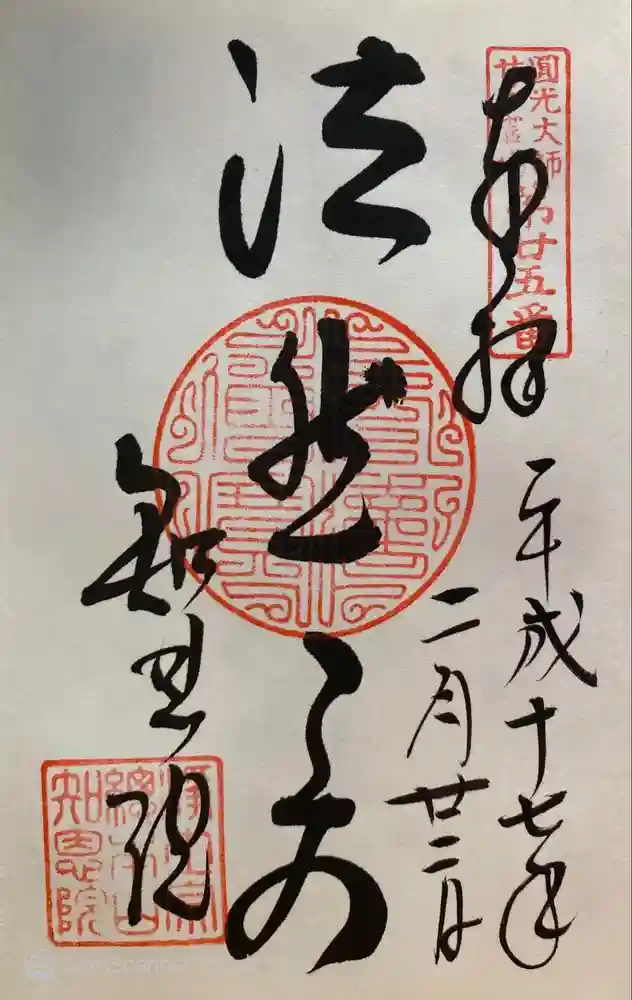 奉拝
圓光大師
廿五霊場
第廿五番
平成十七年
二月廿二日
法然上人
知恩院
浄土宗
總本山
知恩院